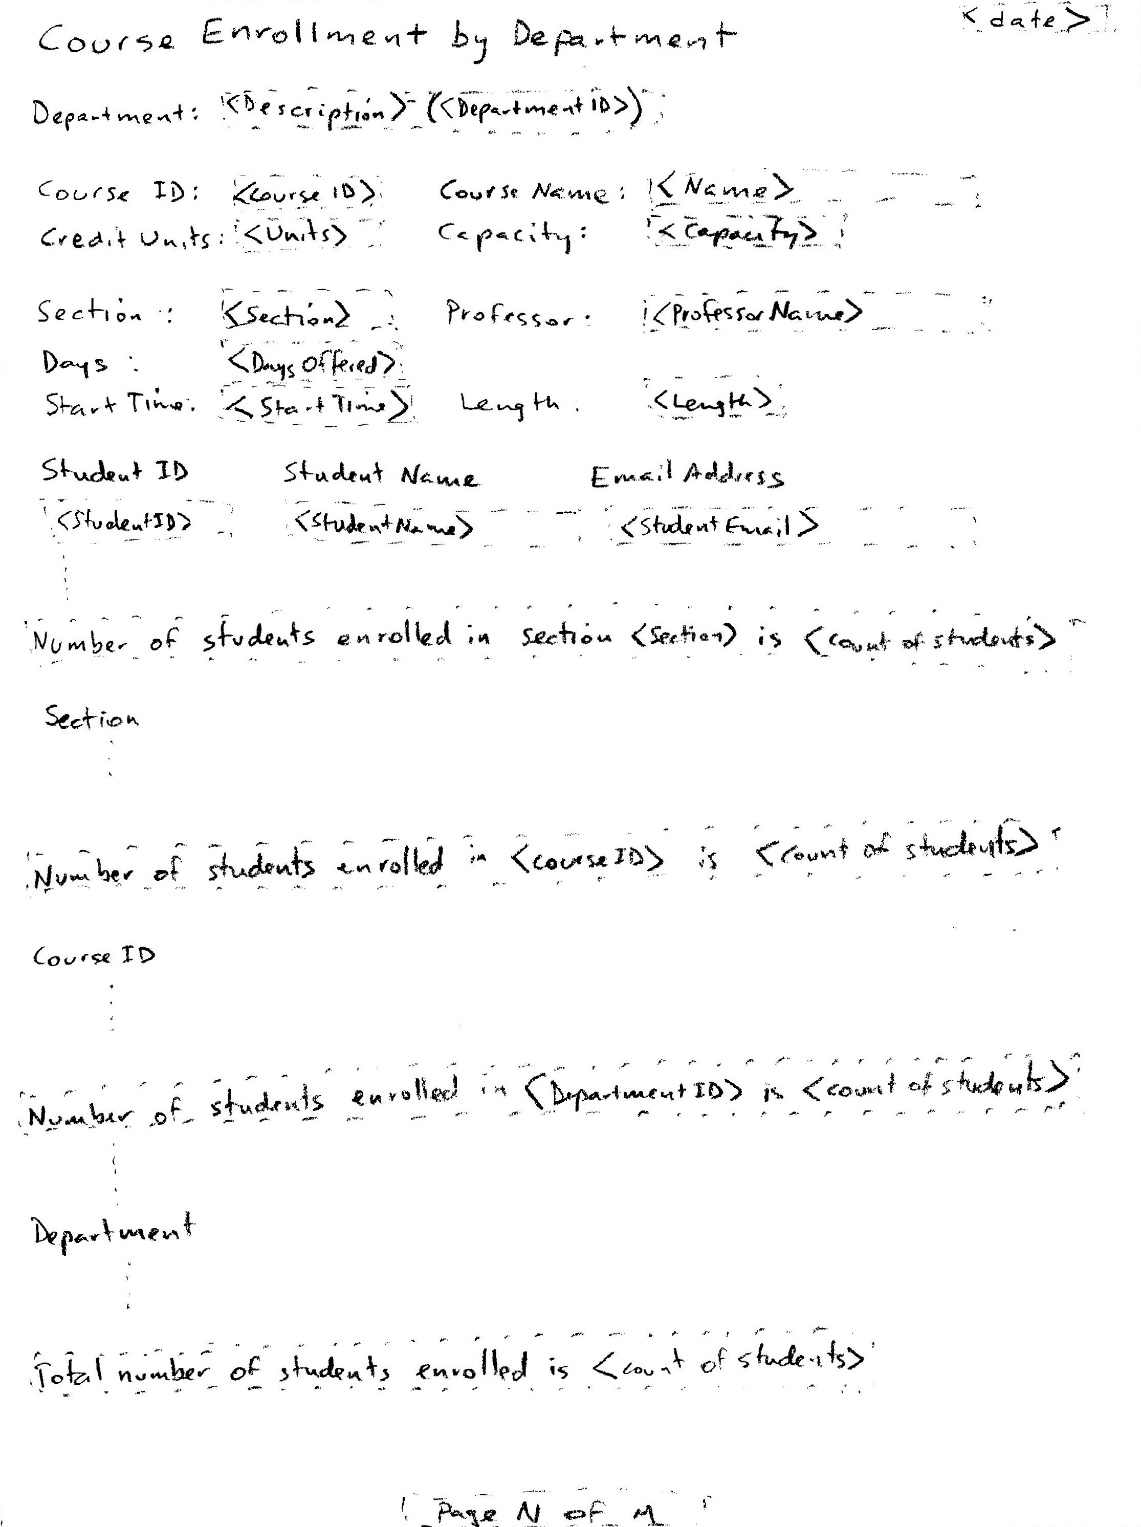 Course Enrollment by Department <date>
Department: <Description> (<DepartmentID>)
Course ID: <CourseID> Course Name: <Name>
Credit Units: <Units> Capacity: <Capacity>
Section: <Section> Professor: <ProfessorName>
Days: <DaysOffered>
Start Time: <StartTime> Length: <Length>
Student ID Student Name Email Address
<StudentID> <StudentName> <StudentEmail>
Number of students enrolled in section <Section> is <count of students>
Section
Number of students enrolled in <courseID> is <count of students>
Course ID
Number of students enrolled in <DepartmentID> is <count of students>
Department
Total number of students enrolled is <count of students>
Page N of M